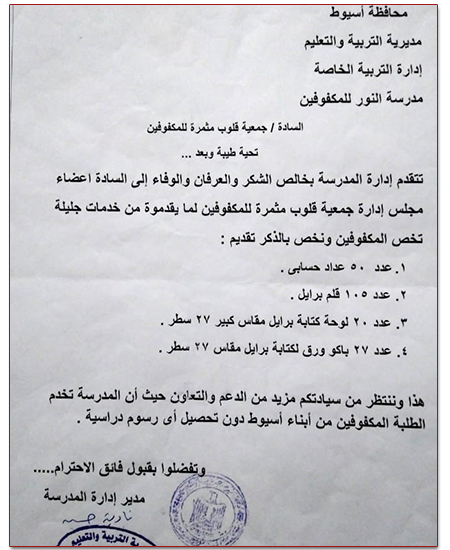 محافظة أسيوط
مديرية التربية والتعليم
إدارة التربية الخاصة
مدرسة النور للمكفوفين
السادة / جمعية قلوب مثمرة للمكفوفين
تحية طيبة وبعد ...
تتقدم إدارة المدرسة بخالص الشكر والعرفان والوفاء إلى السادة اعضاء
مجلس إدارة جمعية قلوب مثمرة للمكفوفين لما يقدموة من خدمات جليلة
تخص المكفوفين ونخص بالذكر تقديم :
١. عدد ٥٠ عداد حسابى .
٢. عدد ١٠٥ قلم برايل .
٣. عدد ٢٠ لوحة كتابة برايل مقاس كبير ٢٧ سطر .
٤. عدد ٢٧ باكو ورق لكتابة برايل مقاس ٢٧ سطر .
هذا وننتظر من سيادتكم مزيد من الدعم والتعاون حيث أن المدرسة تخدم
الطلبة المكفوفين من أبناء أسيوط دون تحصيل أى رسوم دراسية .
وتفضلوا بقبول فائق الاحترام.....
مدير إدارة المدرسة
نادية
ية التربية والتعليم